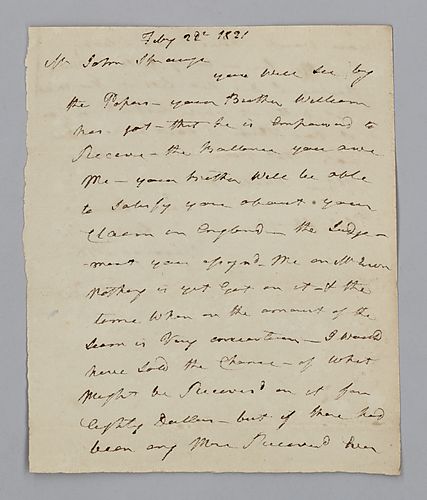 Feby 22d 1821
Mr John
you will see by
the Papers - your Brother William
has got - that he is Empowered to
Receive - the Ballance you owe
Me - your Brother Will be able
to Satisfy you about your
Claim on England - the Judge-
-ment you assynd Me on Mc
Nothing is yet Got on it - & the
time When or the amount of the
Seam is Very uncertain - I would
have Sold the Chance - of What
Might be Receiv'd on it for
Eighty Dollars - but if there had
been any More Received